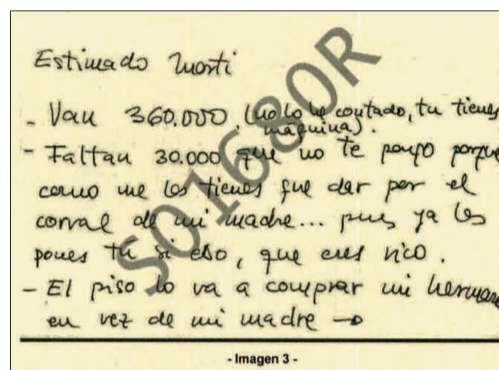 Estimado Morti
- Van 360.000. (no lo he contado, tu tienes
maquina).
- Faltan 30.000 que no te pongo porque
como me los tienes que dar por el
corral de mi madre... pues ya los
pones tu si eso, que eres rico.
- El piso lo va a comprar mi hermano
en vez de mi madre →
SO1680R
- Imagen 3 -